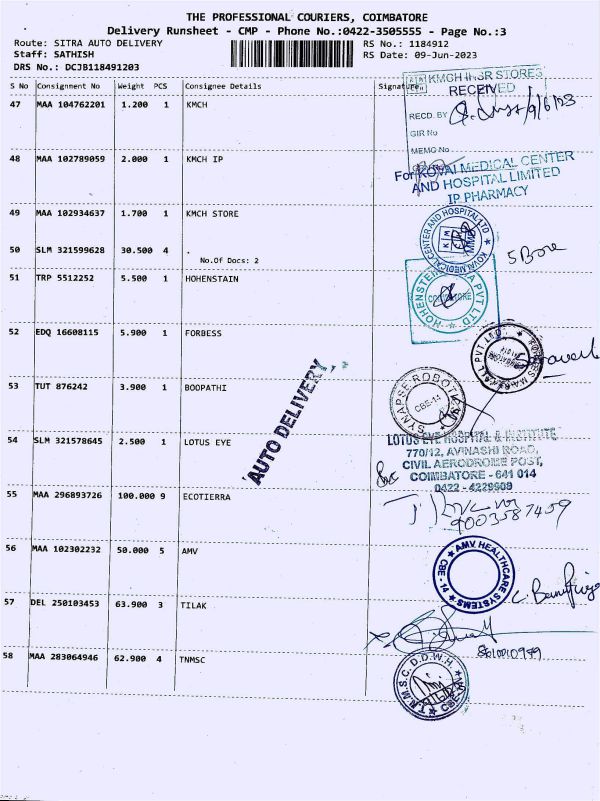 THE PROFESSIONAL COURIERS, COIMBATORE
Delivery Runsheet - CMP - Phone No.:0422-3505555 - Page No.:3
Route: SITRA AUTO DELIVERY RS No.: 1184912
Staff: SATHISH RS Date: 09-Jun-2023
DRS No.: DCJB118491203
S No Consignment No Weight PCS Consignee Details Signature
KMCH INSR STORES
RECEIVED
47 MAA 104762201 1.200 1 KMCH
RECD. BY 9/6/23
GIR No
MEMO No
48 MAA 102789059 2.000 1 KMCH IP
For KOVAI MEDICAL CENTER
AND HOSPITAL LIMITED
IP PHARMACY
49 MAA 102934637 1.700 1 KMCH STORE
KOVAI MEDICAL CENTER AND HOSPITAL LTD
50 SLM 321599628 30.500 4 .
No.Of Docs: 2
51 TRP 5512252 5.500 1 HOHENSTAIN
COIMBATORE
52 EDQ 16608115 5.900 1 FORBESS
53 TUT 876242 3.900 1 BOOPATHI
SYNAPSE ROBOTIC
CBE-14
AUTO DELIVERY
54 SLM 321578645 2.500 1 LOTUS EYE
LOTUS EYE HOSPITAL & INSTITUTE
770/12, AVINASHI ROAD,
CIVIL AERODROME POST,
COIMBATORE - 641 014
0422 - 4229909
55 MAA 296893726 100.000 9 ECOTIERRA
9003587459
56 MAA 102302232 50.000 5 AMV
AMV HEALTHCARE SYSTEMS
CBE - 14
57 DEL 250103453 63.900 3 TILAK
58 MAA 283064946 62.900 4 TNMSC
T.N.M.S.C. D.D.W.H.